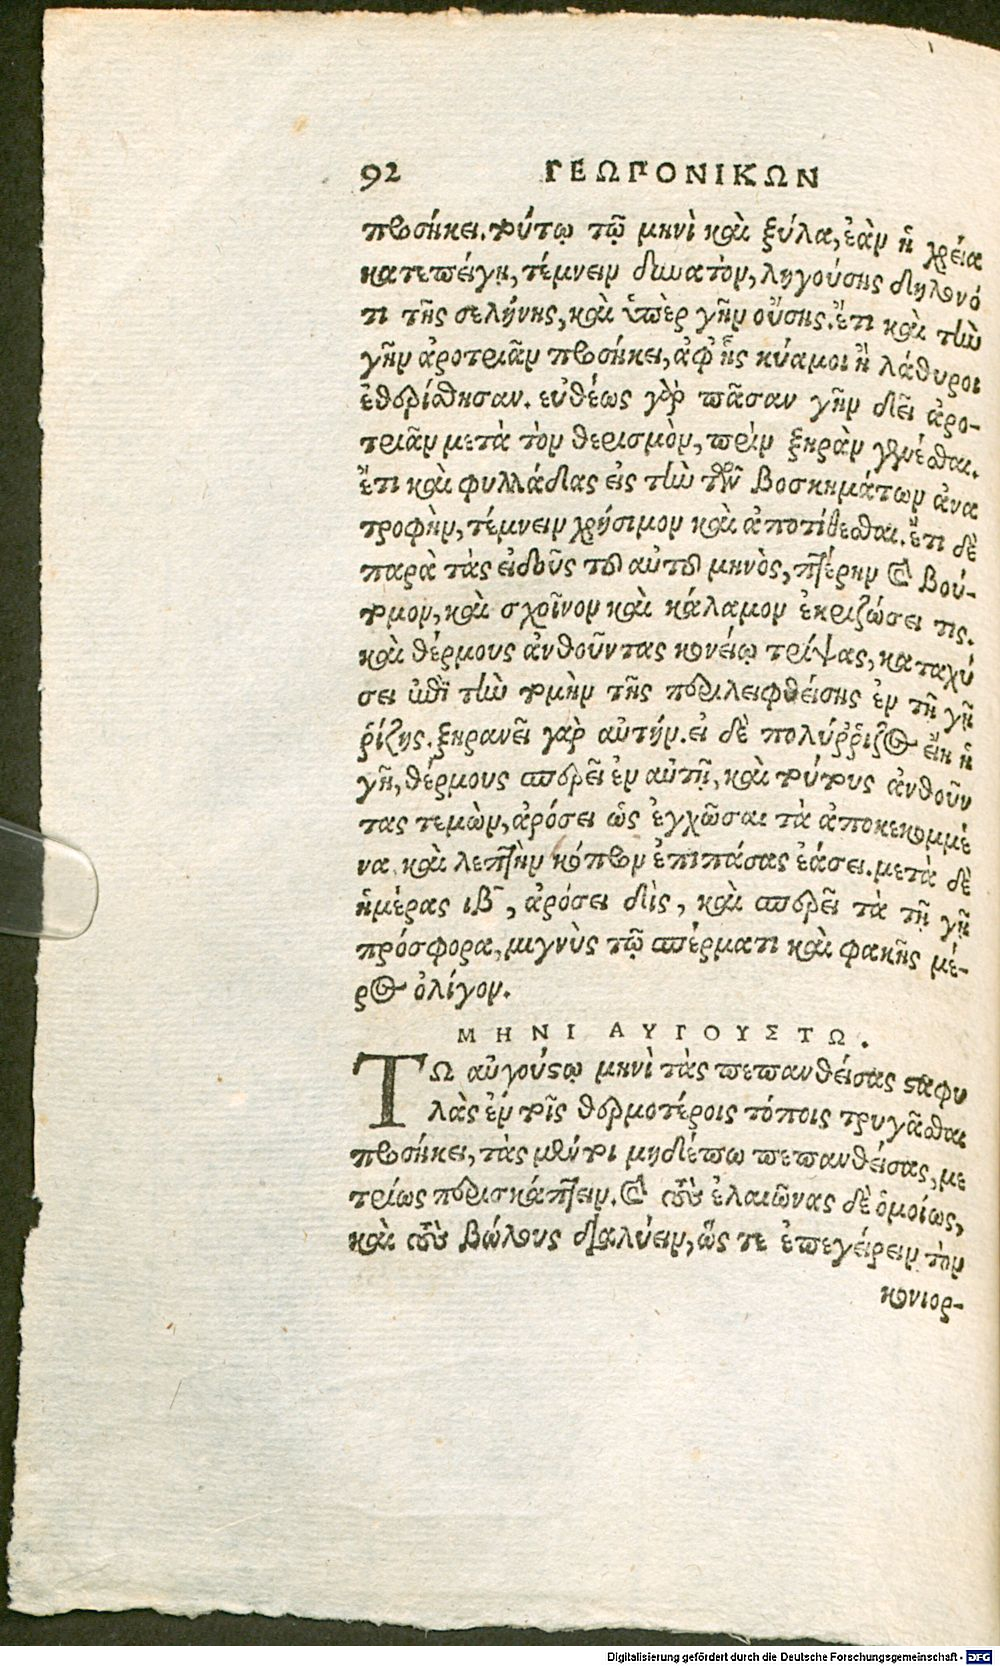 92 ΓΕΩΠΟΝΙΚΩΝ
προσήκει. τούτῳ τῷ μηνὶ καὶ ξύλα, ἐὰν ἡ χρεία
κατεπείγῃ, τέμνειν δυνατὸν, ληγούσης δηλονό
τι τῆς σελήνης, καὶ ὑπὲρ γῆν οὔσης. ἔτι καὶ τὴν
γῆν ἀροτριᾶν προσήκει, ἀφ᾽ ἧς κύαμοι ἢ λάθυροι
ἐθερίσθησαν. εὐθέως γὰρ πᾶσαν γῆν δεῖ ἀρο-
τριᾶν μετὰ τὸν θερισμὸν, πρὶν ξηρὰν γενέσθαι.
ἔτι καὶ φυλλάδας εἰς τὴν τῶν βοσκημάτων ἀνα
τροφὴν, τέμνειν χρήσιμον καὶ ἀποτίθεσθαι. ἔτι δὲ
παρὰ τὰς εἰδοῦς τοῦ αὐτοῦ μηνὸς, πτέρην καὶ βού-
τομον, καὶ σχοῖνον καὶ κάλαμον ἐκριζώσει τις.
καὶ θέρμους ἀνθοῦντας κονείῳ τρίψας, καταχύ
σει ἐπὶ τὴν τομὴν τῆς περιλειφθείσης ἐν τῇ γῇ
ῥίζης. ξηρανεῖ γαρ αὐτήν. εἰ δὲ πολύῤῥιζος εἴη ἡ
γῆ, θέρμους σπερεῖ ἐν αὐτῇ, καὶ τούτους ἀνθοῦν
τας τεμὼν, ἀρόσει ὡς ἐγχῶσαι τὰ ἀποκεκομμέ
να, καὶ λεπτὴν κόπρον ἐπιπάσας ἐάσει. μετὰ δὲ
ἡμέρας ιβ, ἀρόσει δὶς, καὶ σπερεῖ τὰ τῇ γῇ
πρόσφορα, μιγνὺς τῷ σπέρματι καὶ φακῆς μέ-
ρος ὀλίγον.
ΜΗΝΙ ΑΥΓΟΥΣΤΩ.
ΤΩ αὐγούστῳ μηνὶ τὰς πεπανθείσας σταφυ
λὰς ἐν τοῖς θερμοτέροις τόποις τρυγᾶσθαι
προσήκει, τὰς μέντοι μηδέπω πεπανθείσας, με
τρίως περισκάπτειν. καὶ τοὺς ἐλαιῶνας δὲ ὁμοίως,
καὶ τοὺς βώλους διαλύειν, ὥς τε ἐπεγείρειν τὸν
κονιορ-
Digitalisierung gefördert durch die Deutsche Forschungsgemeinschaft - DFG